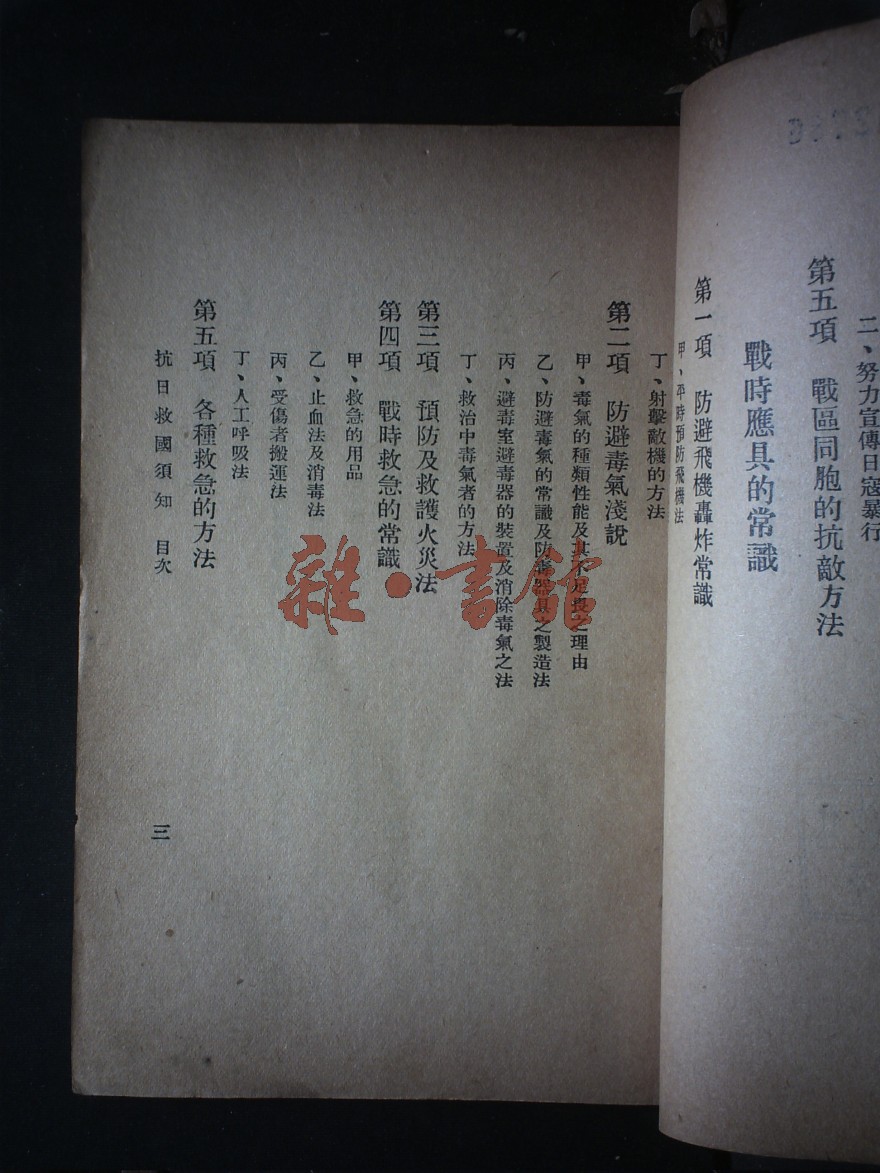 二、努力宣傳日寇暴行
第五項　戰區同胞的抗敵方法
戰時應具的常識
第一項　防避飛機轟炸常識
甲、平時預防飛機法
丁、射擊敵機的方法
第二項　防避毒氣淺說
甲、毒氣的種類性能及其不足畏之理由
乙、防避毒氣的常識及防毒器具之製造法
丙、避毒室避毒器的裝置及消除毒氣之法
丁、救治中毒氣者的方法
第三項　預防及救護火災法
第四項　戰時救急的常識
甲、救急的用品
乙、止血法及消毒法
丙、受傷者搬運法
丁、人工呼吸法
第五項　各種救急的方法
抗日救國須知　目次
三
雜·書館